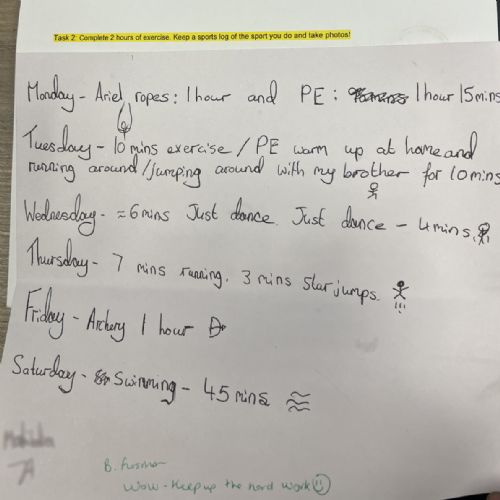 Task 2: Complete 2 hours of exercise. Keep a sports log of the sport you do and take photos!
Monday - Ariel ropes: 1 hour and PE: 1 hour 15 mins
Tuesday - 10 mins exercise / PE warm up at home and
running around/jumping around with my brother for 10 mins
Wednesday - ≈6 mins Just dance. Just dance - 4 mins.
Thursday - 7 mins running. 3 mins star jumps.
Friday - Archery 1 hour
Saturday - Swimming - 45 mins
B.
Wow - Keep up the hard work